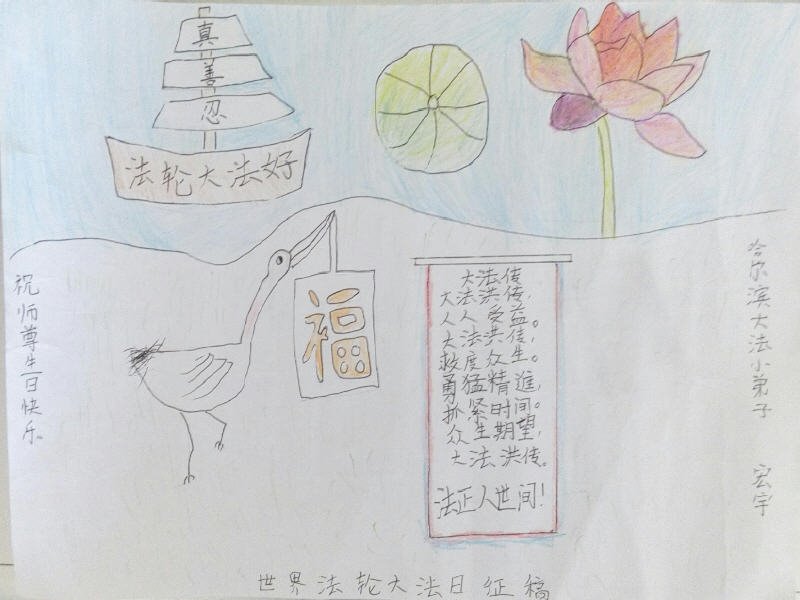 真
善
忍
法轮大法好
福
大法传
大法洪传，
人人受益。
大法洪传，
救度众生。
勇猛精進，
抓紧时间。
众生期望，
大法洪传。
法正人世间！
祝师尊生日快乐。
哈尔滨大法小弟子 宏宇
世界法轮大法日征稿